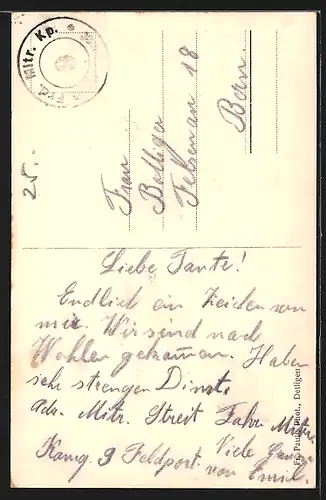 Mitr. Kp.
25.-
Frau
Bolliger
Felsenau 18
Bern
Liebe Tante!
Endlich ein Zeichen von
mir. Wir sind nach
Wohlen gekommen. Haben
sehr strengen Dinst.
Adr. Mitr. Streit Fahr. Mitr.
Komp. 9 Feldpost. Viele Grüsse
von Emil.
Phot., Detligen